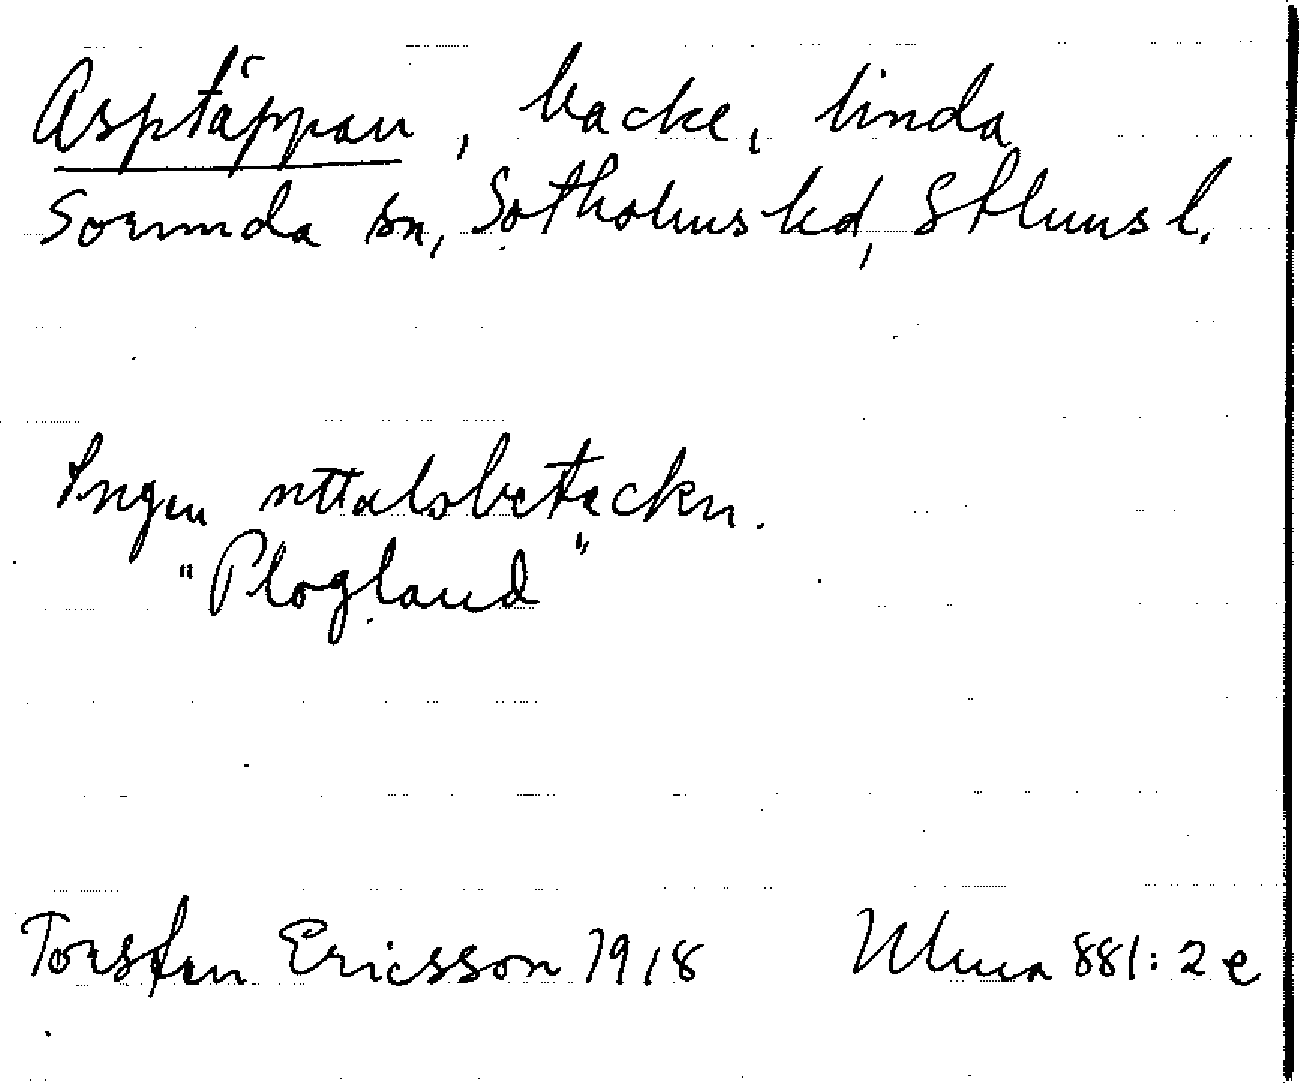 Asptäppan, backe, linda
Sorunda sn, Sotholms hd, Sthlms l.
Ingen uttalsbeteckn.
"Plogland"
Torsten Ericsson 1918 Ulma 881:2 e